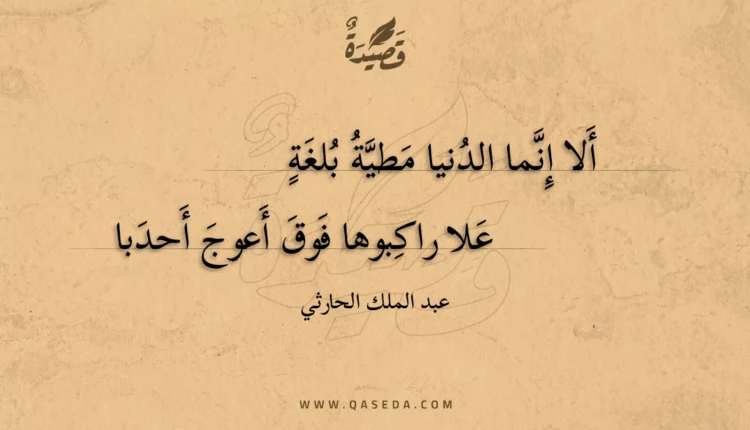 قَصِيدَةٌ
أَلا إِنَّما الدُنيا مَطيَّةُ بُلغَةٍ
عَلا راكِبوها فَوقَ أَعوجَ أَحدَبا
عبد الملك الحارثي
WWW.QASEDA.COM